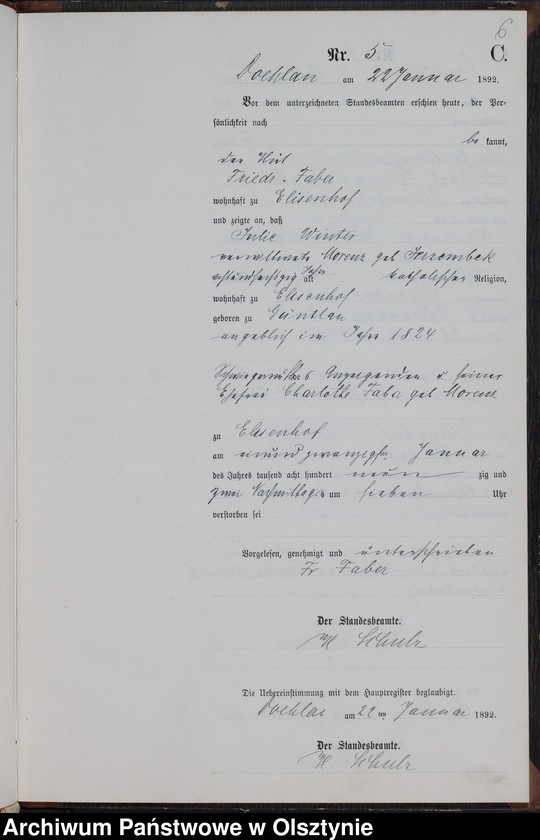 6
Nr. 5 C.
Doehlau am 22 Januar 1892.
Vor dem unterzeichneten Standesbeamten erschien heute, der Per-
sönlichkeit nach
be kannt,
der Wirt
Friedr. Faber
wohnhaft zu Elisenhof
und zeigte an, daß
Julie Winter
verwittwete Morenz geb
achtundsechszig Jahre alt katholischer Religion,
wohnhaft zu Elisenhof
geboren zu
angeblich im Jahre 1824
Schwiegermutter des Anzeigenden u. seiner
Ehefrau Charlotte Faber geb Morenz
zu Elisenhof
am einundzwanzigsten Januar
des Jahres tausend acht hundert neun zig und
zwei Nachmittags um sieben Uhr
verstorben sei
Vorgelesen, genehmigt und unterschrieben
Fr Faber
Der Standesbeamte.
Schulz
Die Uebereinstimmung mit dem Hauptregister beglaubigt.
Doehlau am 22ten Januar 1892.
Der Standesbeamte.
Schulz
Archiwum Państwowe w Olsztynie